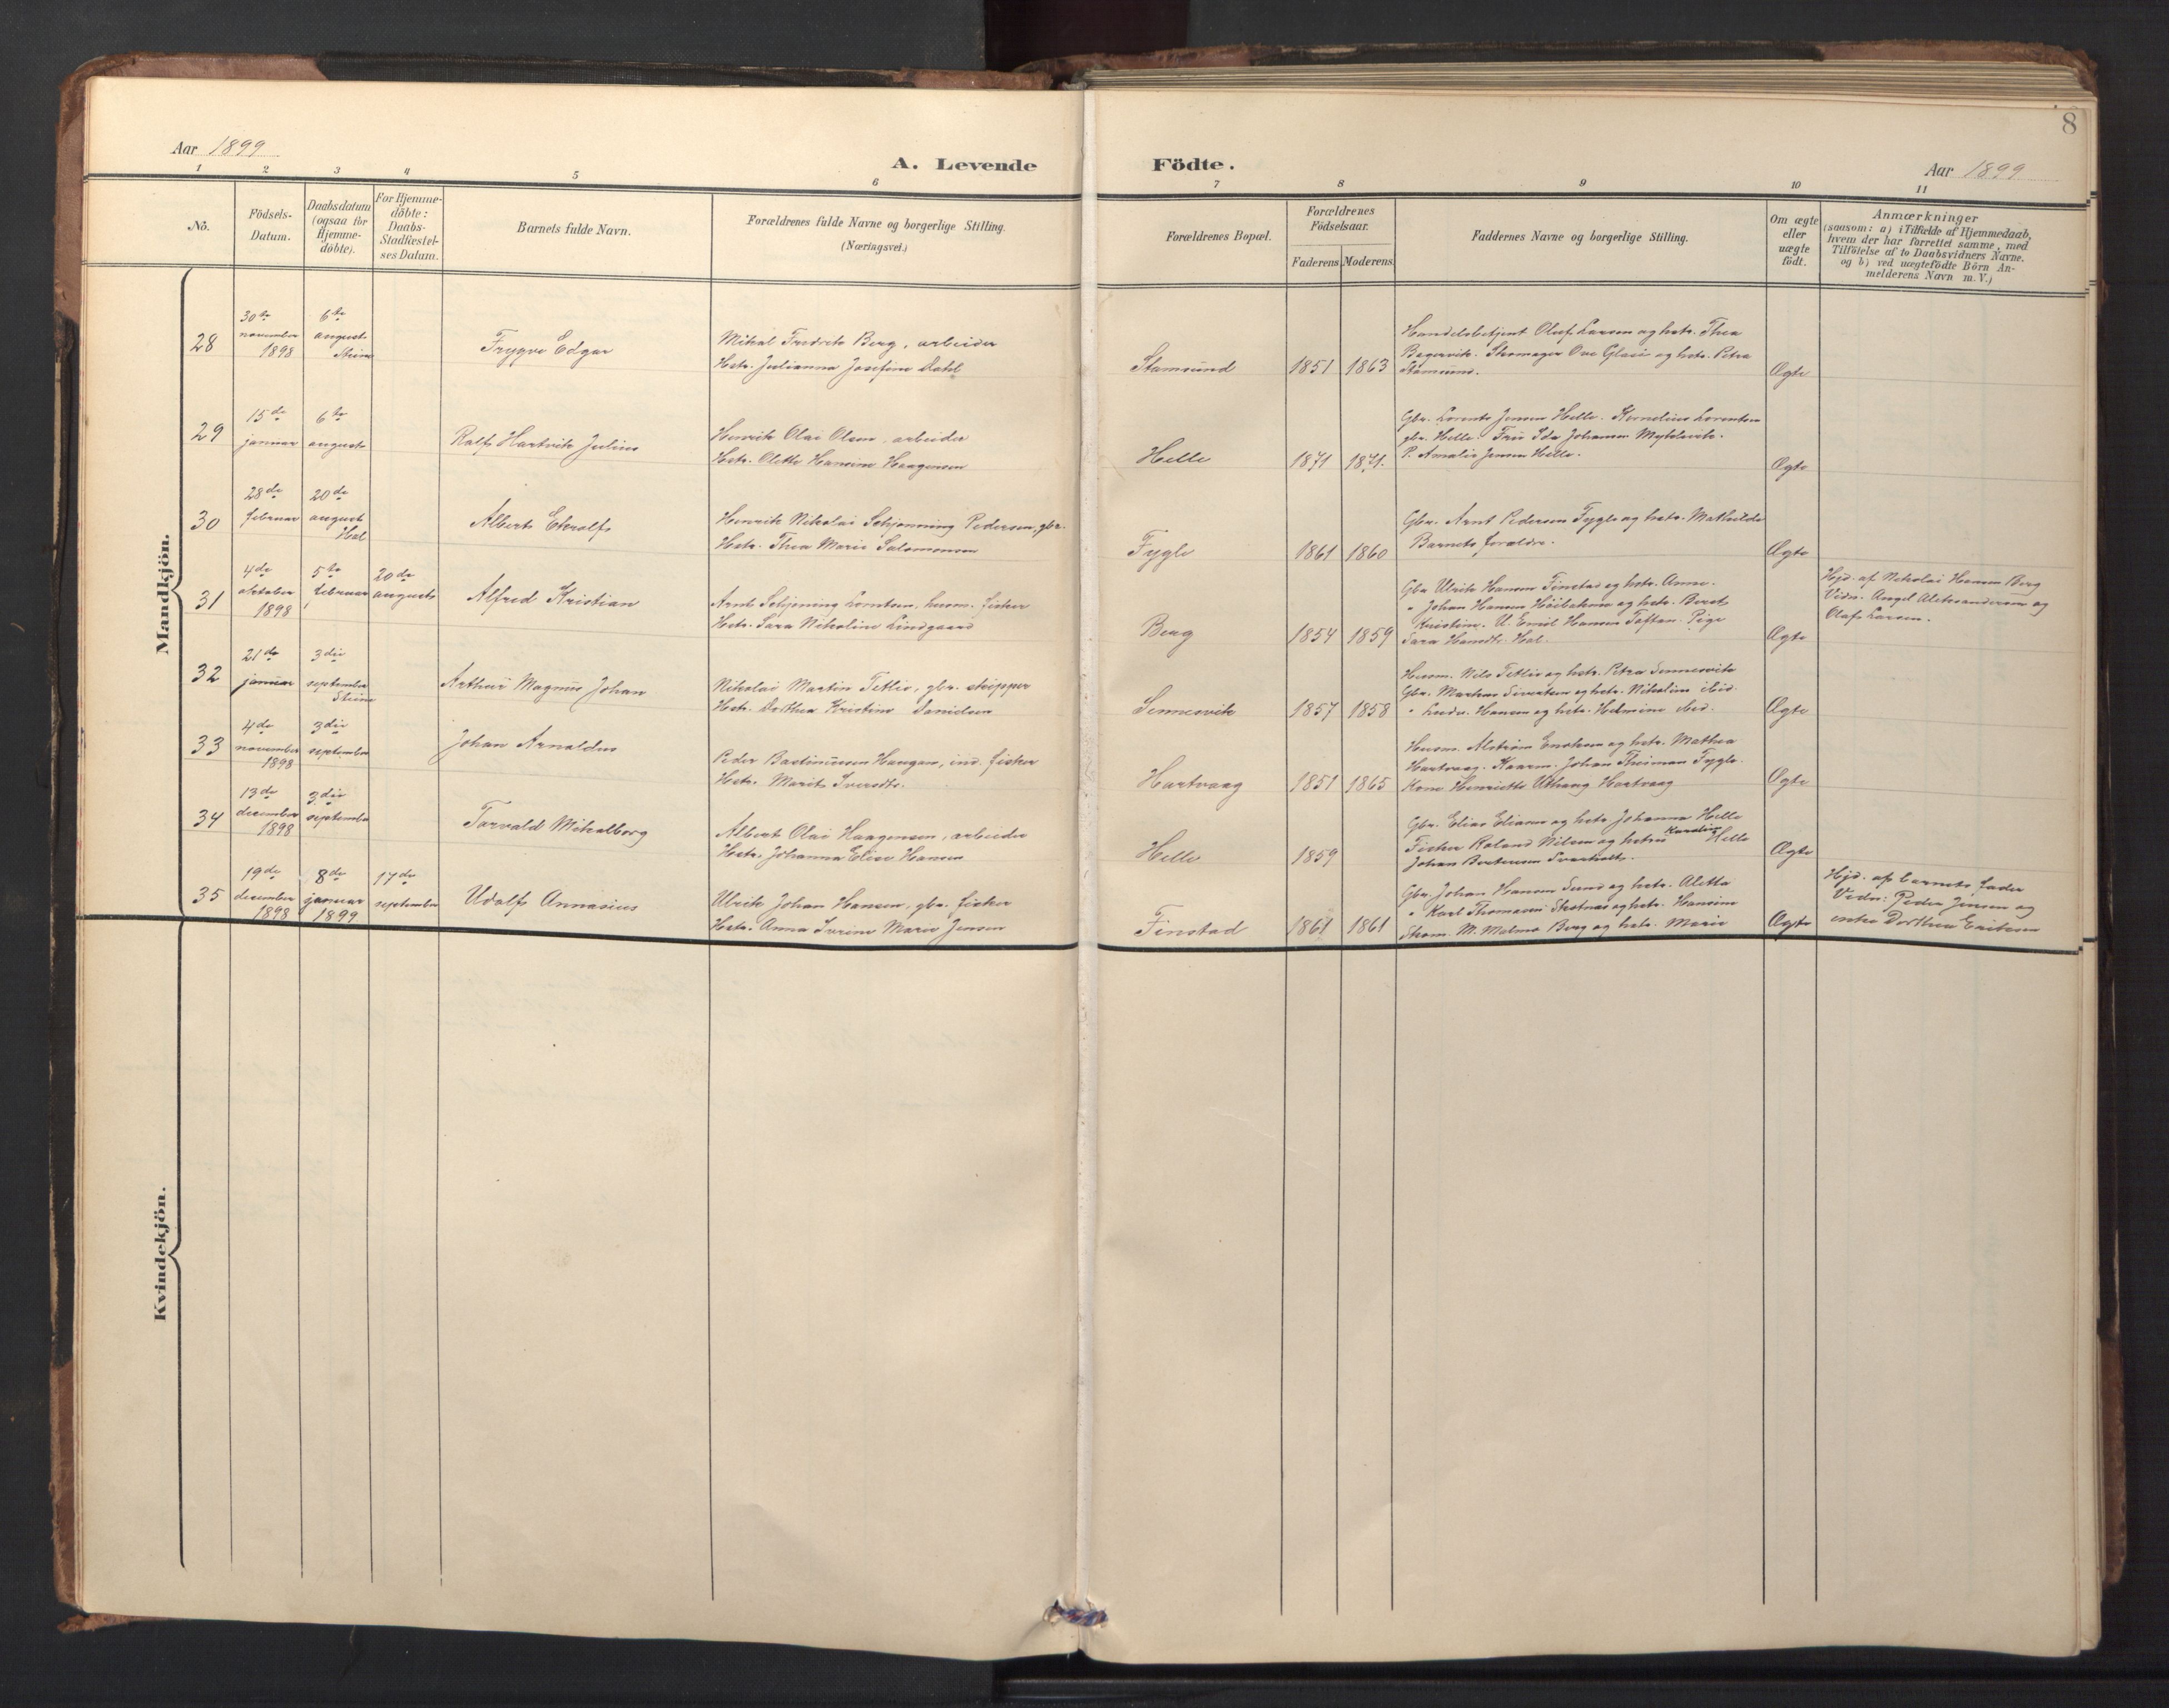 8
Aar 1899
A. Levende Födte.
Aar 1899
1 2 3 4 5 6 7 8 9 10 11
No.
Födsels-
Datum.
Daabsdatum
(ogsaa for
Hjemme-
döbte).
For Hjemme-
döbte:
Daabs-
Stadfæstel-
ses Datum.
Barnets fulde Navn.
Forældrenes fulde Navne og borgerlige Stilling.
(Næringsvei.)
Forældrenes Bopæl.
Forældrenes
Födselsaar.
Faderens Moderens
Faddernes Navne og borgerlige Stilling.
Om ægte
eller
uægte
födt.
Anmærkninger
(saasom: a) i Tilfælde af Hjemmedaab,
hvem der har forrettet samme, med
Tilföielse af to Daabsvidners Navne.
og b) ved uægtefödte Börn An-
melderens Navn m. V.)
Mandkjön.
28
30te
november
1898
6te
august
Steine
Trygve Edgar
Mikal Fredrik Berg, arbeider
Hstr. Julianna Josefine Dahl
Stamsund
1851 1863
Handelsbetjent Oluf Larsen og hstr. Thea
Skomager Ove Glasö og hstr. Petra
Stamsund.
Ægte
29
15de
januar
6te
august
Ralf Hartvik Julius
Henrik Olai Olsen, arbeider
Hstr. Olette Hansine Haagensen
Helle
1871 1871.
Gbr. Lorents Jensen Helle. Kornelius Lorentsen
gbr. Helle. Frü Ida Johansen
P. Amalie Jensen Helle.
Ægte
30
28de
februar
20de
august
Hol
Albert Ekralf
Henrik Nikolai Schjønning Pedersen, gbr.
Hstr. Thea Marie Salomonsen
Fygle
1861 1860
Gbr. Arnt Pedersen Fygle og hstr. Mathilde
Barnets forældre.
Ægte
31
4de
oktober
1898
5te
februar
20de
august
Alfred Kristian
Arnt Schjøning Lorntsen, husm. fisker
Hstr. Sara Nikoline Lindgaard
Berg
1854 1859
Gbr Ulrik Hansen Finstad og hstr. Anne.
" Johan Hansen og hstr. Berit
Kristine. U. Emil Hansen Toftan. Pige
Sara Hansdtr. Hol.
Ægte
Hjd. af Nikolai Hansen Berg
Vidn. Angel Aleksandersen og
Olaf Larsen.
32
21de
januar
3die
september
Steine
Arthur Magnus Johan
Nikolai Martin Tetlie, gbr. skipper
Hstr. Dorthea Kristine Danielsen
Sennesvik
1857 1858
Husm. Nils Tetlie og hstr. Petra Sennesvik
Gbr. Markus Sivertsen og hstr. Nikoline ibid.
" Ludv. Hansen og hstr. Helmine ibid.
Ægte
33
4de
november
1898
3die
september
Johan Arnoldus
Peder Bastinussen Haugan, ind. fisker
Hstr. Marit Iversdtr.
Hartvaag
1851 1865
Husm. Alstrøm Enoksen og hstr. Mathea
Hartvaag. Johan Theiman Fygle.
Kone Henriette Uthaug Hartvaag
Ægte
34
13de
december
1898
3die
september
Torvald Mikalborg
Albert Olai Haagensen, arbeider
Hstr. Johanna Elise Hansen
Helle
1859
Gbr. Elias Eliasen og hstr Johanna Helle
Fisker Roland Nilsen og hstru Karoline Helle
Johan Berteusen
Ægte
35
19de
december
1898
8de
januar
1899
17de
september
Udolf Annasius
Ulrik Johan Hansen, gbr. fisker
Hstr. Anna Ivrine Marie Jensen
Finstad
1861 1861
Gbr. Johan Hansen Sund og hstr. Aletta
" Karl Thomasen og hstr. Hansine
M. Malmo Berg og hstr. Marie
Ægte
Hjd. af barnets fader
Vidn: Peder Jensen og
enke Dorthea Eriksen
Kvindekjön.